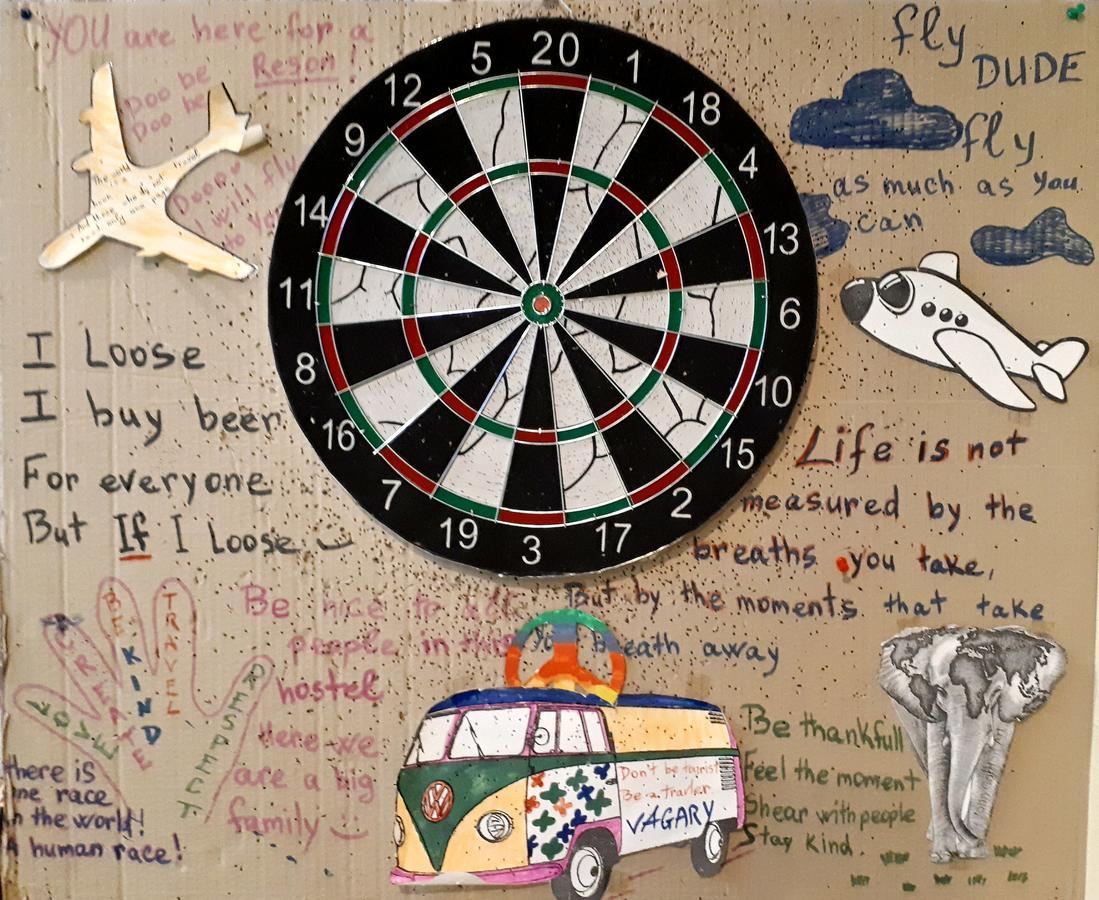 YOU are here for a
Reson!
Doo be
Doo be
Doop
I will fly
to you
fly
DUDE
fly
as much as You
can
5
20
1
18
4
13
6
10
15
2
17
3
19
7
16
8
11
14
9
12
I Loose
I buy beer
For everyone
But If I Loose
Life is not
measured by the
breaths you take,
But by the moments that take
breath away
Be nice to all
people in this
hostel
Here we
are a big
family
LOVE
CREATE
BE KIND
TRAVEL
RESPECT
there is
one race
in the world!
A human race!
Don't be tourist
Be a travler
VAGARY
VW
Be thankfull
Feel the moment
Shear with people
Stay Kind.